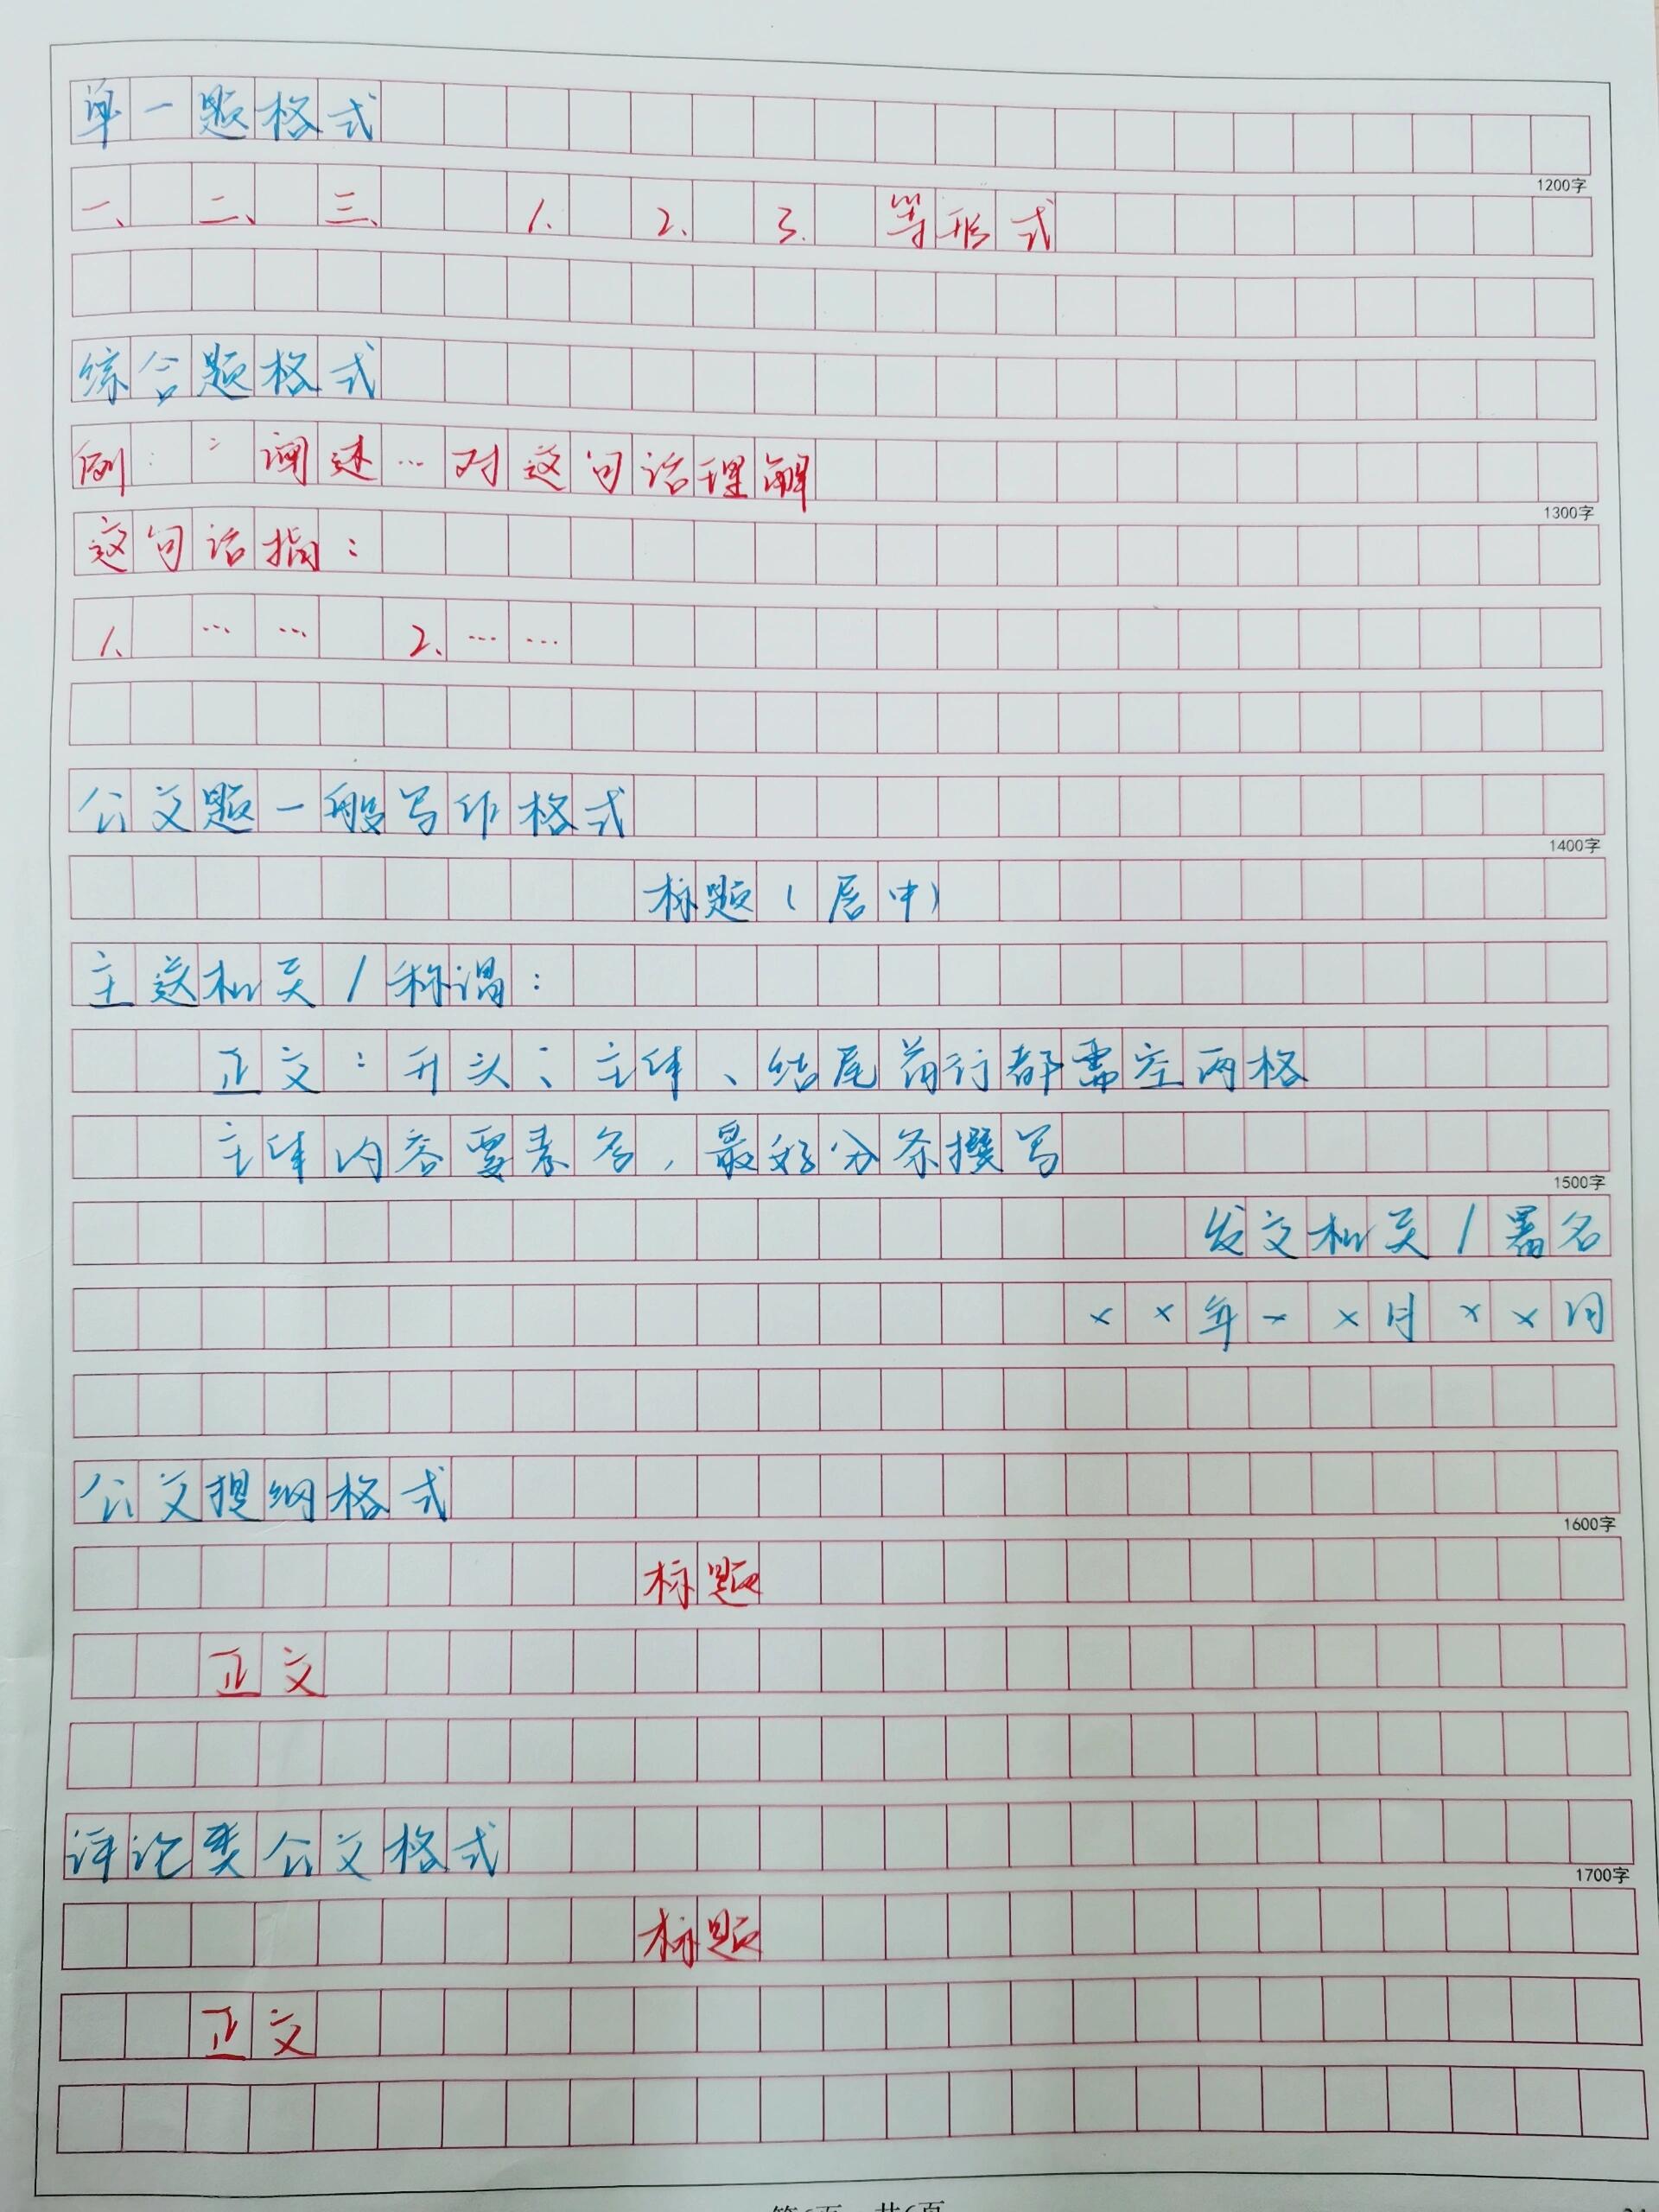 单一题格式
1200字
一、 二、 三、 1. 2. 3. 等形式
综合题格式
例：“阐述…对这句话理解
1300字
这句话指：
1、…… 2、……
公文题一般写作格式
1400字
标题（居中）
主送机关/称谓：
正文：开头、主体、结尾首行都需空两格
主体内容要素多，最好分条撰写
1500字
发文机关/署名
××年××月××日
公文提纲格式
1600字
标题
正文
评论类公文格式
1700字
标题
正文